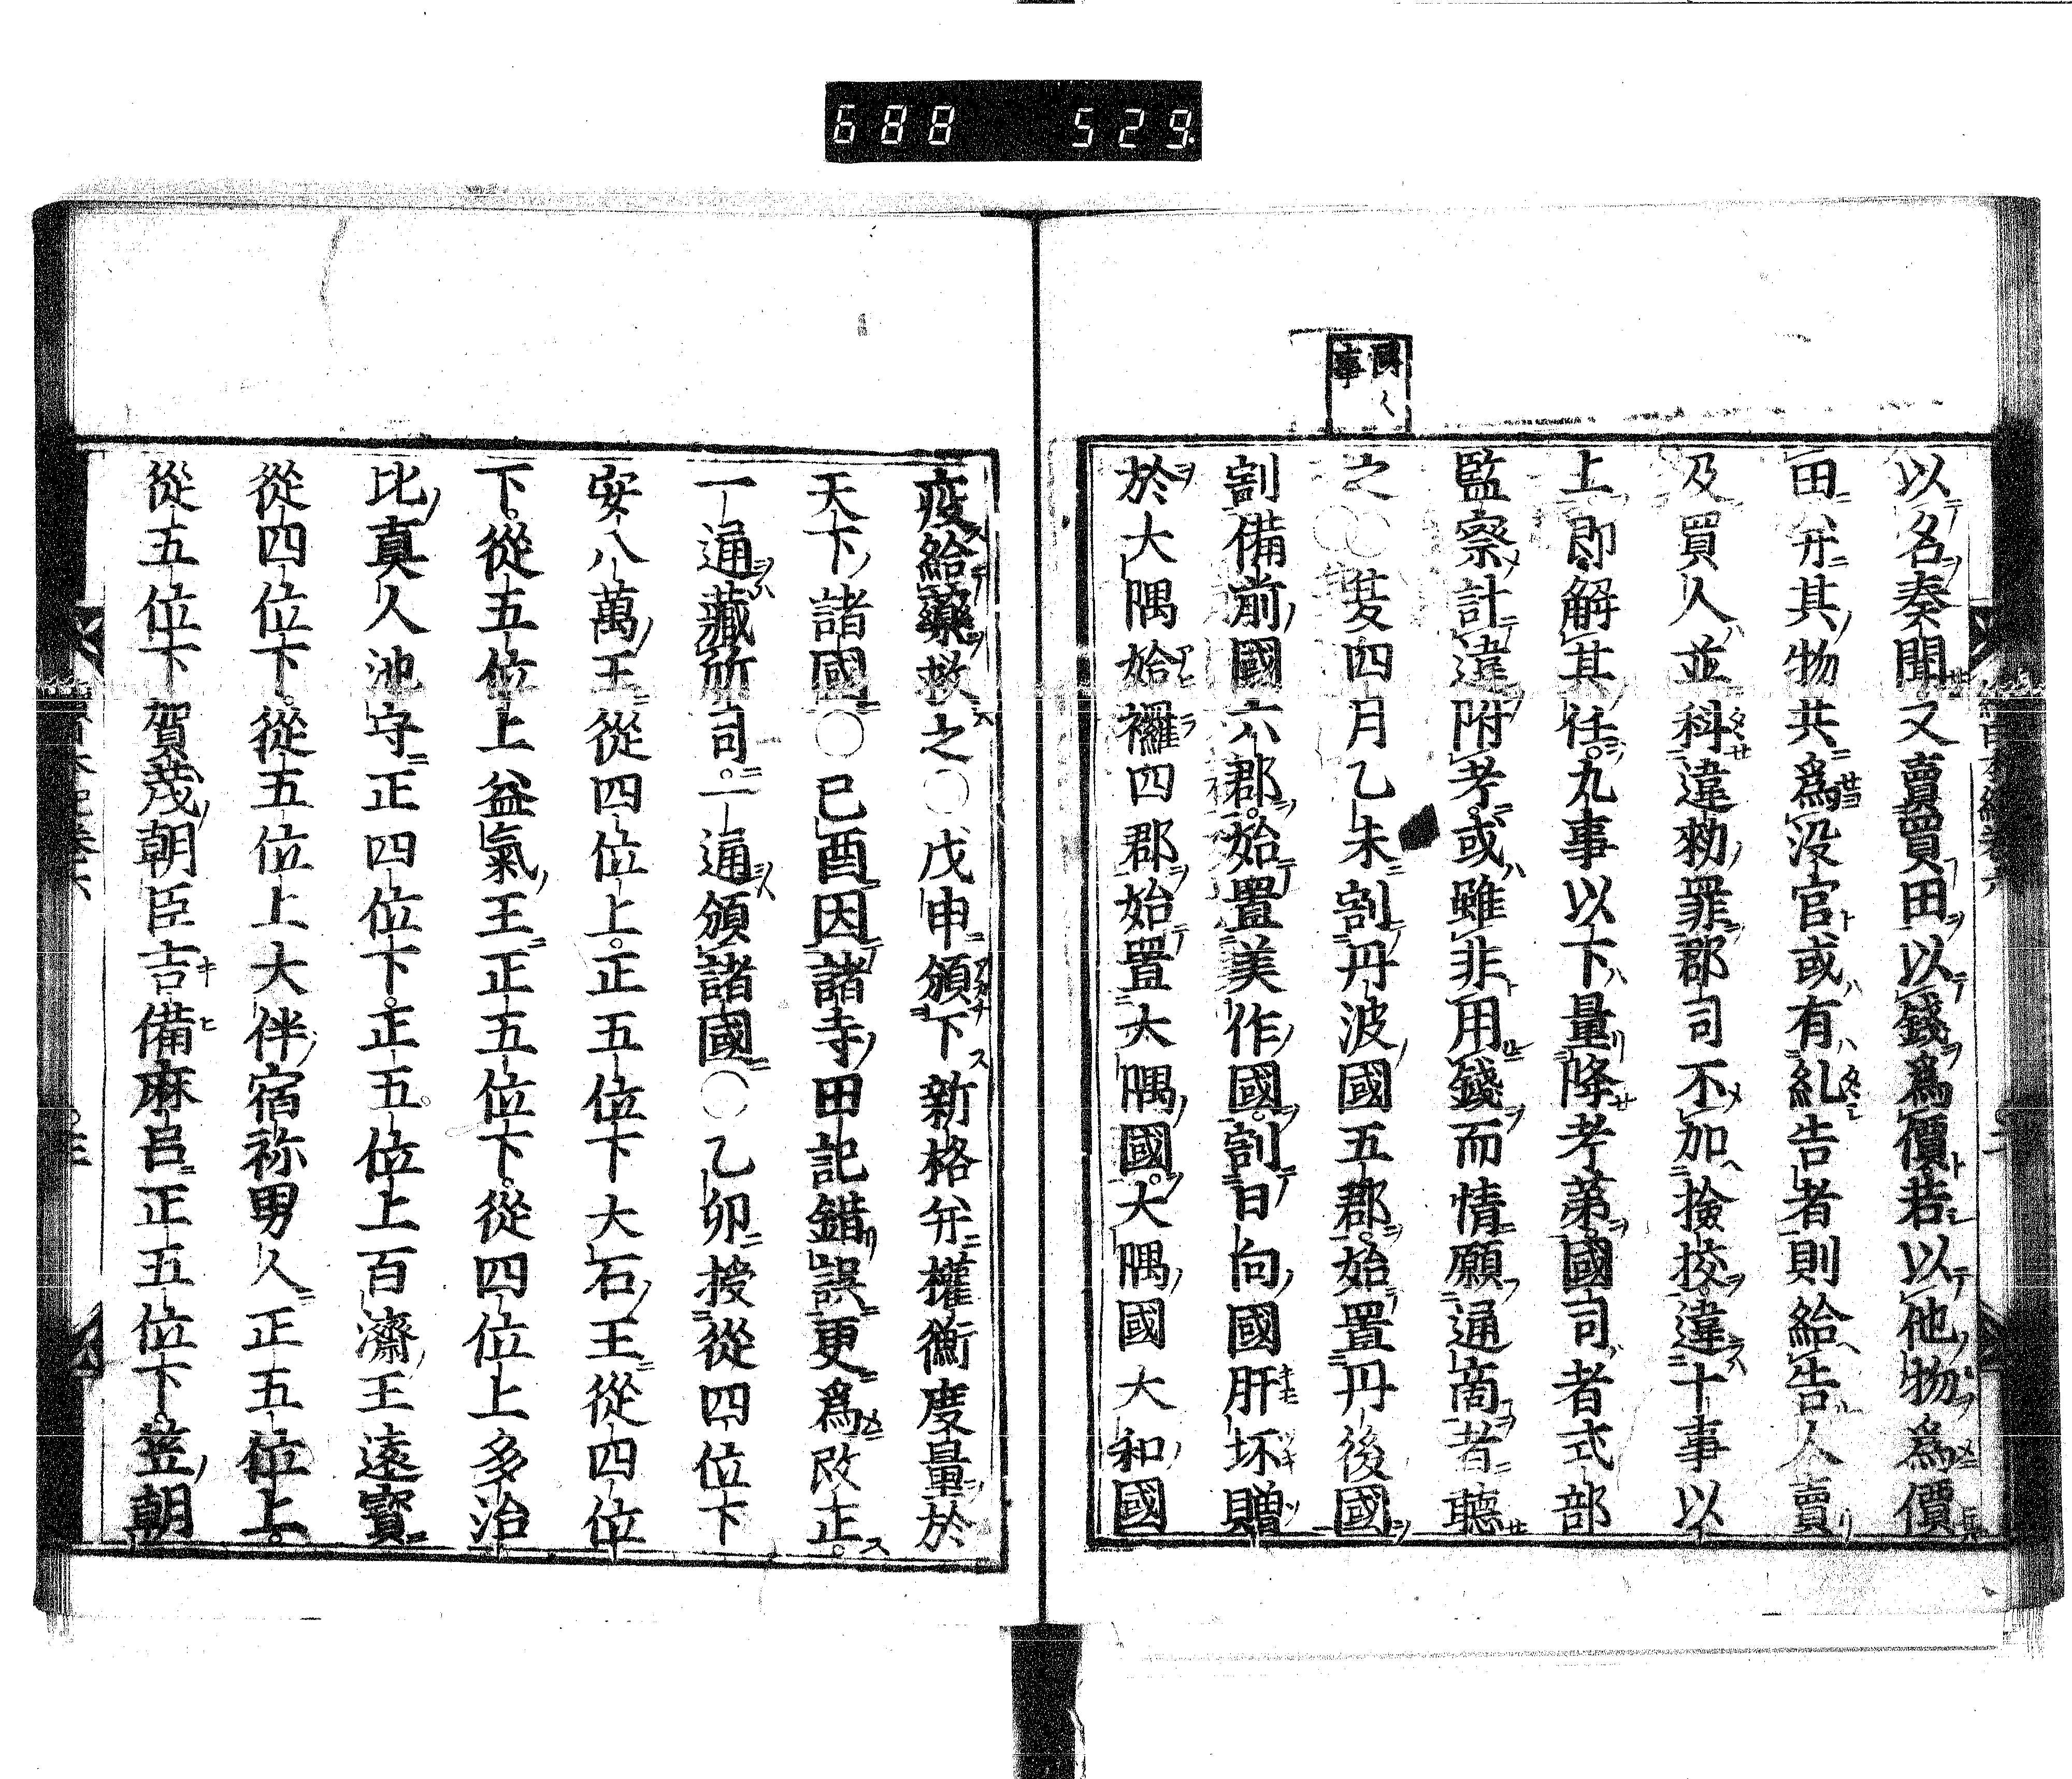 688 529
以名奏聞又賣買田以錢爲價若以他物爲價
田并其物共爲没官或有糺告者則給告人賣
及買人並科違勑罪郡司不加撿挍違十事以
上即解其任九事以下量降考第國司者式部
監察計違附考或雖非用錢而情願通商者聽
之〇〇夏四月乙未割丹波國五郡始置丹後國
割備前國六郡始置美作國割日向國肝坏贈
於大隅姶䙰四郡始置大隅國大隅國大和國
疫給藥救之〇戊申頒下新格并權衡度量於
天下諸國〇己酉因諸寺田記錯誤更爲改正
一通藏所司一通頒諸國〇乙卯授從四位下
安八萬王從四位上正五位下大石王從四位
下從五位上益氣王正五位下從四位上多治
比真人池守正四位下正五位上百濟王遠寳
從四位下從五位上大伴宿祢男人正五位上
從五位下賀茂朝臣吉備麻呂正五位下笠朝